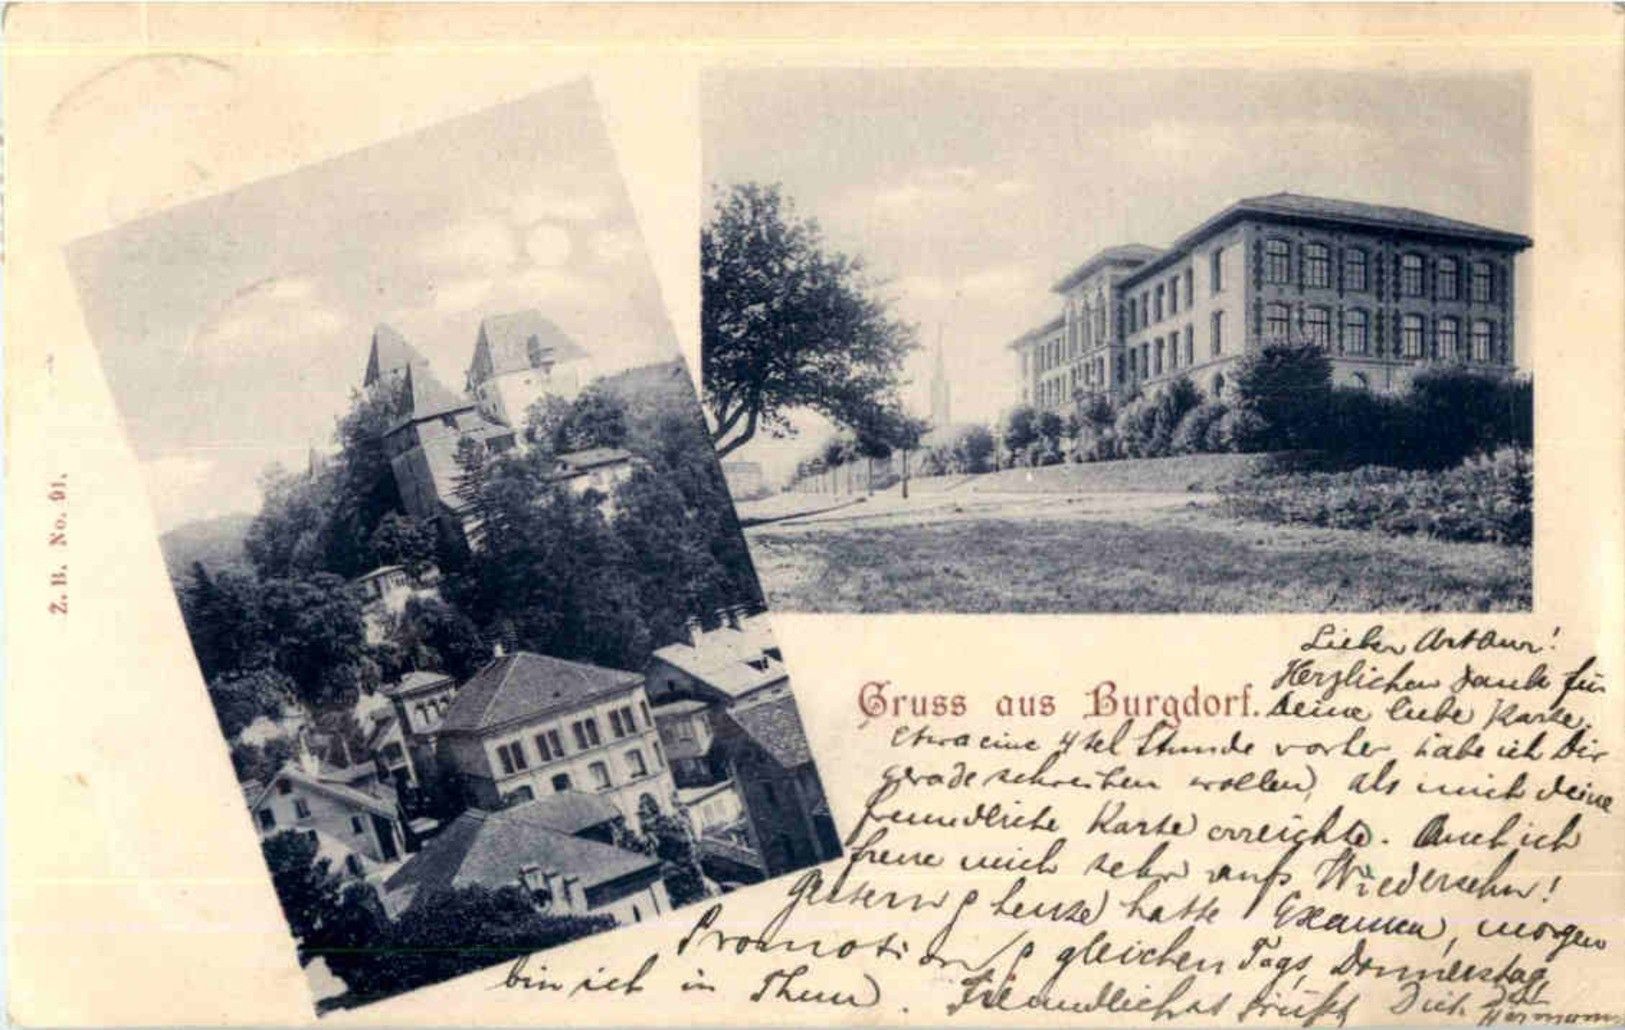 Z. B. No. 91.
Gruss aus Burgdorf.
Lieber Arthur!
Herzlichen Dank für
Deine liebe Karte.
Etwa eine 4tel Stunde vorher habe ich Dir
gerade schreiben wollen, als mich Deine
freundliche Karte erreichte. Auch ich
freue mich sehr aufs Wiedersehn!
Gestern & heute hatte Examen, morgen
Promotion & gleichen Tags, Donnerstag,
bin ich in Thun. Freundlichst grüsst Dich Dein
Hermann